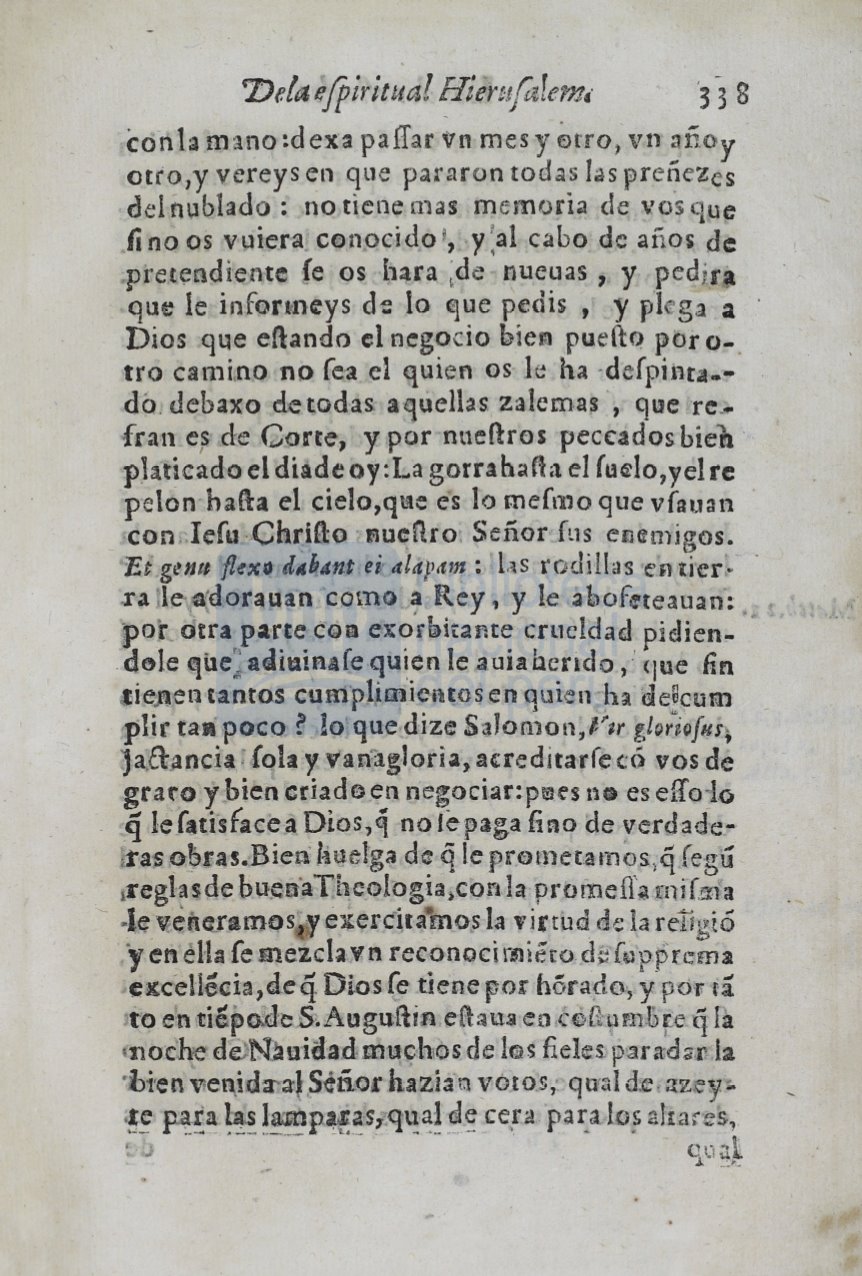 De la eſpiritual Hieruſalem. 338
con la mano: dexa paſſar vn mes y otro, vn año y
otro, y vereys en que pararon todas las preñezes
del nublado : no tiene mas memoria de vos que
ſi no os vuiera conocido, y al cabo de años de
pretendiente ſe os hara de nueuas , y pedira
que le informeys de lo que pedis , y plega a
Dios que eſtando el negocio bien pueſto por o-
tro camino no ſea el quien os le ha deſpinta-
do debaxo de todas aquellas zalemas , que re-
fran es de Corte, y por nueſtros peccados bien
platicado el dia de oy: La gorra haſta el ſuelo, y el re
pelon haſta el cielo, que es lo meſmo que vſauan
con Ieſu Chriſto nueſtro Señor ſus enemigos.
Et genu flexo dabant ei alapam : las rodillas en tier-
ra le adorauan como a Rey, y le abofeteauan:
por otra parte con exorbitante crueldad pidien-
dole que adiuinaſe quien le auia herido, que fin
tienen tantos cumplimientos en quien ha de cum
plir tan poco ? lo que dize Salomon, Vir glorioſus,
jactancia ſola y vanagloria, acreditarſe cõ vos de
grato y bien criado en negociar: pues no es eſſo lo
q̃ le ſatisface a Dios, q̃ no ſe paga ſino de verdade-
ras obras. Bien huelga de q̃ le prometamos, q̃ ſegũ
reglas de buena Theologia, con la promeſſa miſma
le veneramos, y exercitamos la virtud de la religiõ
y en ella ſe mezcla vn reconocimiẽto de ſupprema
excellẽcia, de q̃ Dios ſe tiene por hõrado, y por tã
to en tiẽpo de S. Auguſtin eſtaua en coſtumbre q̃ la
noche de Nauidad muchos de los fieles para dar la
bien venida al Señor hazian votos, qual de azey-
te para las lamparas, qual de cera para los altares,
qual